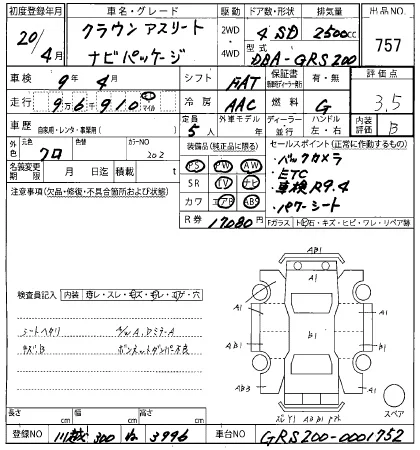 初度登録年月 車名・グレード 駆動 ドア数・形状 排気量 出品NO.
20/4月 クラウン アスリート ナビパッケージ 2WD ・ 4WD 4 SD 2500cc 757
型式 DBA-GRS200
車検 9年 4月 シフト FAT 保証書 有・無 評価点 3.5
走行 9万6千910 マイル 冷房 AAC 燃料 G
車歴 自家用・レンタ・事業用( ) 定員 5人 外車モデル 年 ディーラー 並行 ハンドル 左・右 内装 B
外色 元色 クロ 色替 カラーNO 202
装備品(純正品に限る) セールスポイント(正常に動作するもの)
名義変更期限 月 日迄 積載 t
PS PW AW ・バックカメラ
SR TV ナビ ・ETC
カワ エアB ABS ・車検R9.4
・パワーシート
注意事項(欠品・修復・不具合箇所および状態)
R券 17080円
Fガラス 飛石・キズ・ヒビ・ワレ・リペア跡
検査員記入 内装
シートヘタリ
キズ、B ボンネットダンパ不良
AB1
A1
A1 A1
AB1 B1 B1
AB3 A1
スペア
長さ cm 幅 cm 高さ cm
登録NO 川越 300 ね 3996 車台NO GRS200-0001752